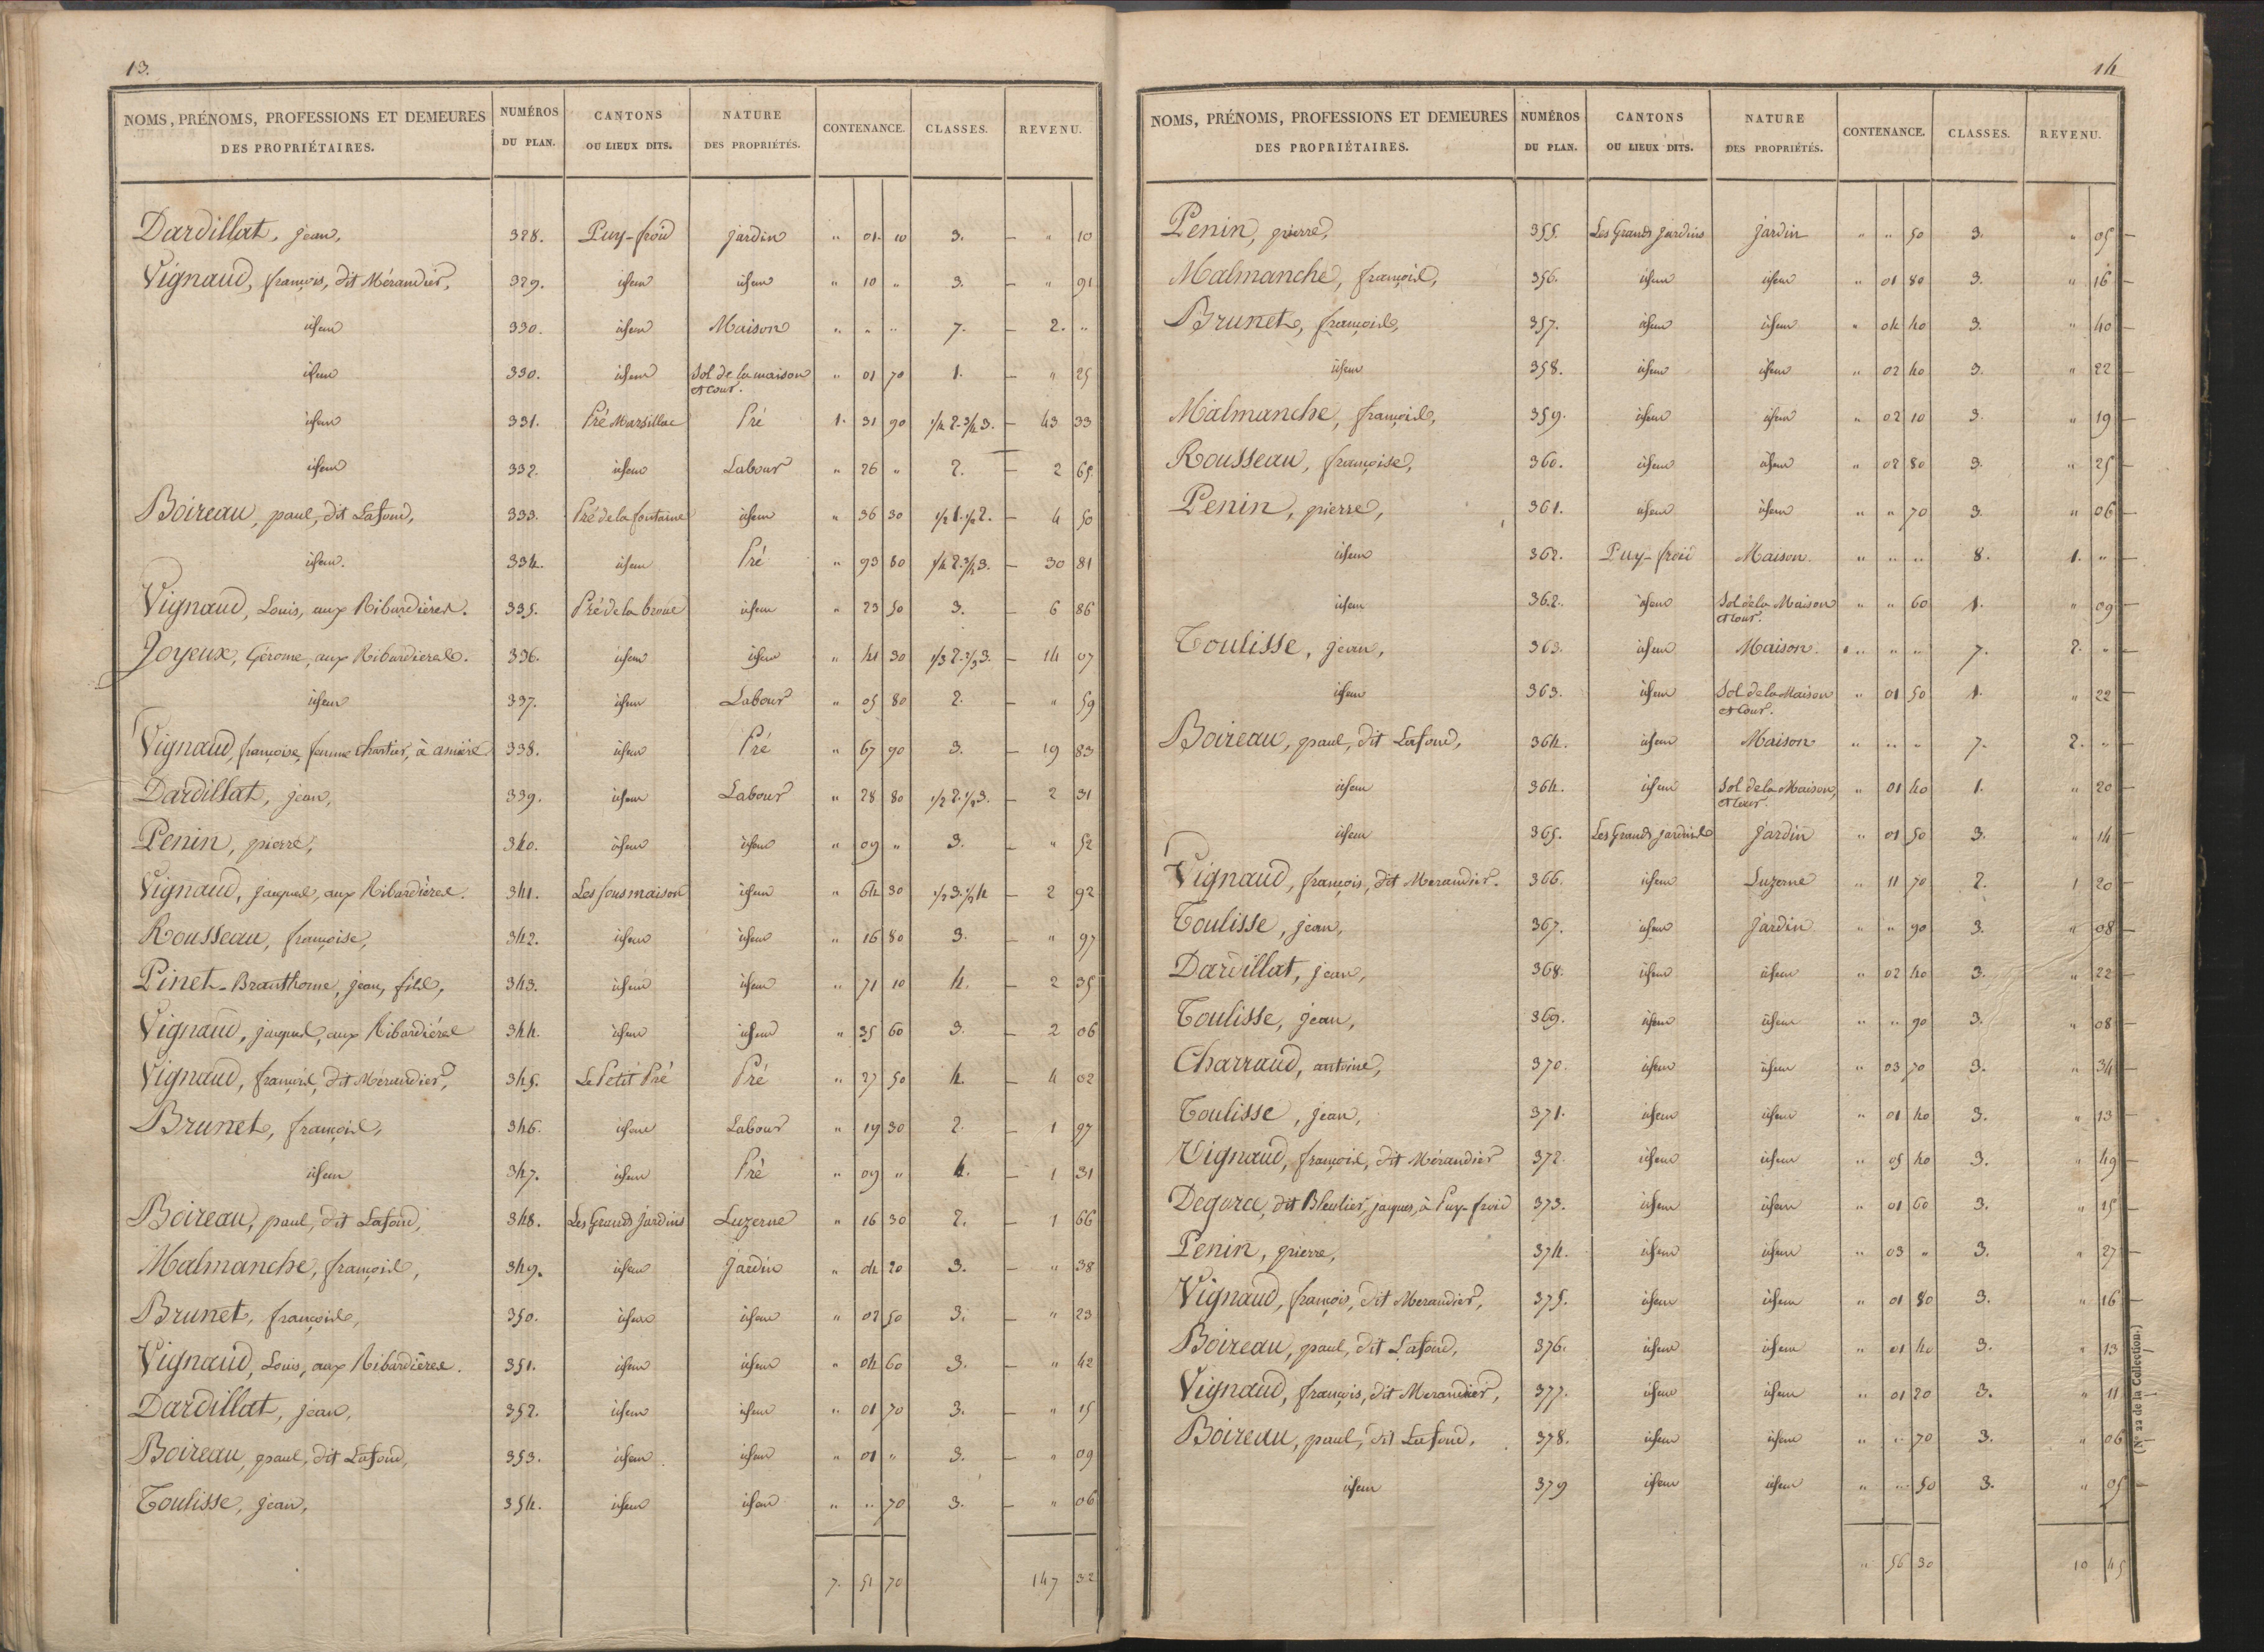 13.
NOMS, PRÉNOMS, PROFESSIONS ET DEMEURES DES PROPRIÉTAIRES. NUMÉROS DU PLAN. CANTONS OU LIEUX DITS. NATURE DES PROPRIÉTÉS. CONTENANCE. CLASSES. REVENU.
Dardillat, jean, 328. Puy-froid jardin " 01. 10 3. — " 10
Vignaud, françois, dit Mérandier, 329. idem idem " 10 " 3. — " 91
idem 330. idem Maison " " " 7. — 2. "
idem 330. idem Sol de la maison et Cour. " 01 70 1. — " 25
idem 331. Pré Marsillac Pré 1. 31 90 1/4 2. 3/4 3. — 43 33
idem 332. idem Labour " 26 " 2. — 2 65
Boireau, paul, dit Lafond, 333. Pré de la fontaine idem " 36 30 1/2 1. 1/2 2. — 4 50
idem. 334. idem Pré " 93 80 1/4 2. 3/4 3. — 30 81
Vignaud, Louis, aux Ribardières. 335. Pré de la braue idem " 23 50 3. — 6 86
Joyeux, Gérome, aux Ribardieres. 336. idem idem " 41 30 1/3 2. 2/3 3. — 14 07
idem 337. idem Labour " 05 80 2. — " 59
Vignaud, françoise, femme Chartier, à asnière 338. idem Pré " 67 90 3. — 19 83
Dardillat, jean, 339. idem Labour " 28 80 1/2 2. 1/2 3. — 2 31
Penin, pierre, 340. idem idem " 09 " 3. — " 52
Vignaud, jacques, aux Ribardières. 341. Les sous maison idem " 64 30 1/2 3. 1/2 4 — 2 92
Rousseau, françoise, 342. idem idem " 16 80 3. — " 97
Pinet-Branthome, jean, fils, 343. idem idem " 71 10 4. — 2 35
Vignaud, jacques, aux Ribardiéres 344. idem idem " 35 60 3. — 2 06
Vignaud, françois, dit Mérandier, 345. Le Petit Pré Pré " 27 50 4. — 4 02
Brunet, françois, 346. idem Labour " 19 30 2. — 1 97
idem 347. idem Pré " 09 " 4. — 1 31
Boireau, paul, dit Lafond, 348. Les Grands jardins Luzerne " 16 30 2. — 1 66
Malmanche, françois, 349. idem Jardin " 04 20 3. — " 38
Brunet, françois, 350. idem idem " 02 50 3. — " 23
Vignaud, Louis, aux Ribardières. 351. idem idem " 04 60 3. — " 42
Dardillat, jean, 352. idem idem " 01 70 3. — " 15
Boireau, paul, dit Lafond, 353. idem idem " 01 " 3. — " 09
Toulisse, jean, 354. idem idem " " 70 3. — " 06
7. 51 70 147 32
14
NOMS, PRÉNOMS, PROFESSIONS ET DEMEURES DES PROPRIÉTAIRES. NUMÉROS DU PLAN. CANTONS OU LIEUX DITS. NATURE DES PROPRIÉTÉS. CONTENANCE. CLASSES. REVENU.
Penin, pierre, 355. Les Grands jardins jardin " " 50 3. " 05 —
Malmanche, françois, 356. idem idem " 01 80 3. " 16 —
Brunet, françois, 357. idem idem " 04 40 3. " 40 —
idem 358. idem idem " 02 40 3. " 22 —
Malmanche, françois, 359. idem idem " 02 10 3. " 19 —
Rousseau, françoise, 360. idem idem " 02 80 3. " 25 —
Penin, pierre, 361. idem idem " " 70 3. " 06 —
idem 362. Puy-froid Maison. " " " 8. 1. " —
idem 362. idem Sol de la Maison et Cour. " " 60 1. " 09 —
Toulisse, jean, 363. idem Maison. " " " 7. 2. " —
idem 363. idem Sol de la Maison et Cour. " 01 50 1. " 22 —
Boireau, paul, dit Lafond, 364. idem Maison " " " 7. 2. " —
idem 364. idem Sol de la Maison, et Cour. " 01 40 1. " 20 —
idem 365. Les Grands jardins Jardin " 01 50 3. " 14 —
Vignaud, françois, dit Merandier. 366. idem Luzerne " 11 70 2. 1 20 —
Toulisse, jean, 367. idem jardin " " 90 3. " 08 —
Dardillat, jean, 368. idem idem " 02 40 3. " 22 —
Toulisse, jean, 369. idem idem " " 90 3. " 08 —
Charraud, antoine, 370. idem idem " 03 70 3. " 34 —
Toulisse, jean, 371. idem idem " 01 40 3. " 13 —
Vignaud, françois, dit Mérandier 372. idem idem " 05 40 3. " 49 —
Degorce, dit Bleutier, jacques, à Puy-froid 373. idem idem " 01 60 3. " 15 —
Penin, pierre, 374. idem idem " 03 " 3. " 27 —
Vignaud, françois, dit Merandier, 375. idem idem " 01 80 3. " 16 —
Boireau, paul, dit Lafond, 376. idem idem " 01 40 3. " 13 —
Vignaud, françois, dit Merandier, 377. idem idem " 01 20 3. " 11 —
Boireau, paul, dit Lafond, 378. idem idem " " 70 3. " 06 —
idem 379 idem idem " " 50 3. " 05 —
" 56 30 10 45
(N° 22 de la Collection.)